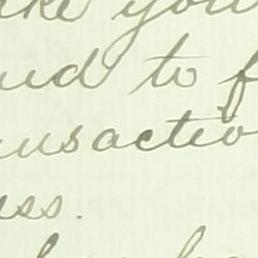 ake you
nd to f
nsactio
ess.